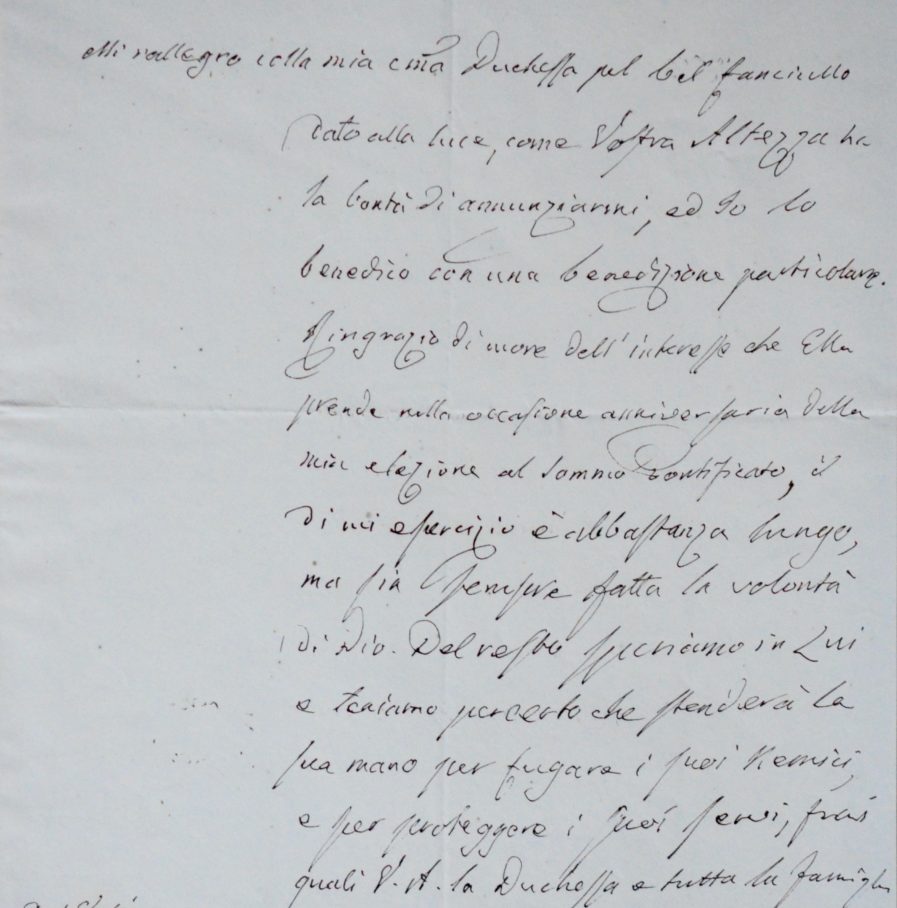 Mi rallegro colla mia cma Duchessa pel bel fanciullo
dato alla luce, come Vostra Altezza ha
la bontà di annunziarmi, ed Io lo
benedico con una benedizione particolare.
Ringrazio di cuore dell'interesse che Ella
prende nella occasione anniversaria della
mia elezione al Sommo Pontificato, il
di cui esercizio è abbastanza lungo,
ma sia sempre fatta la volontà
di Dio. Del resto speriamo in Lui
e teniamo percerto che stenderà la
sua mano per fugare i suoi Nemici,
e per proteggere i suoi servi, frai
quali V. A. la Duchessa e tutta la famiglia